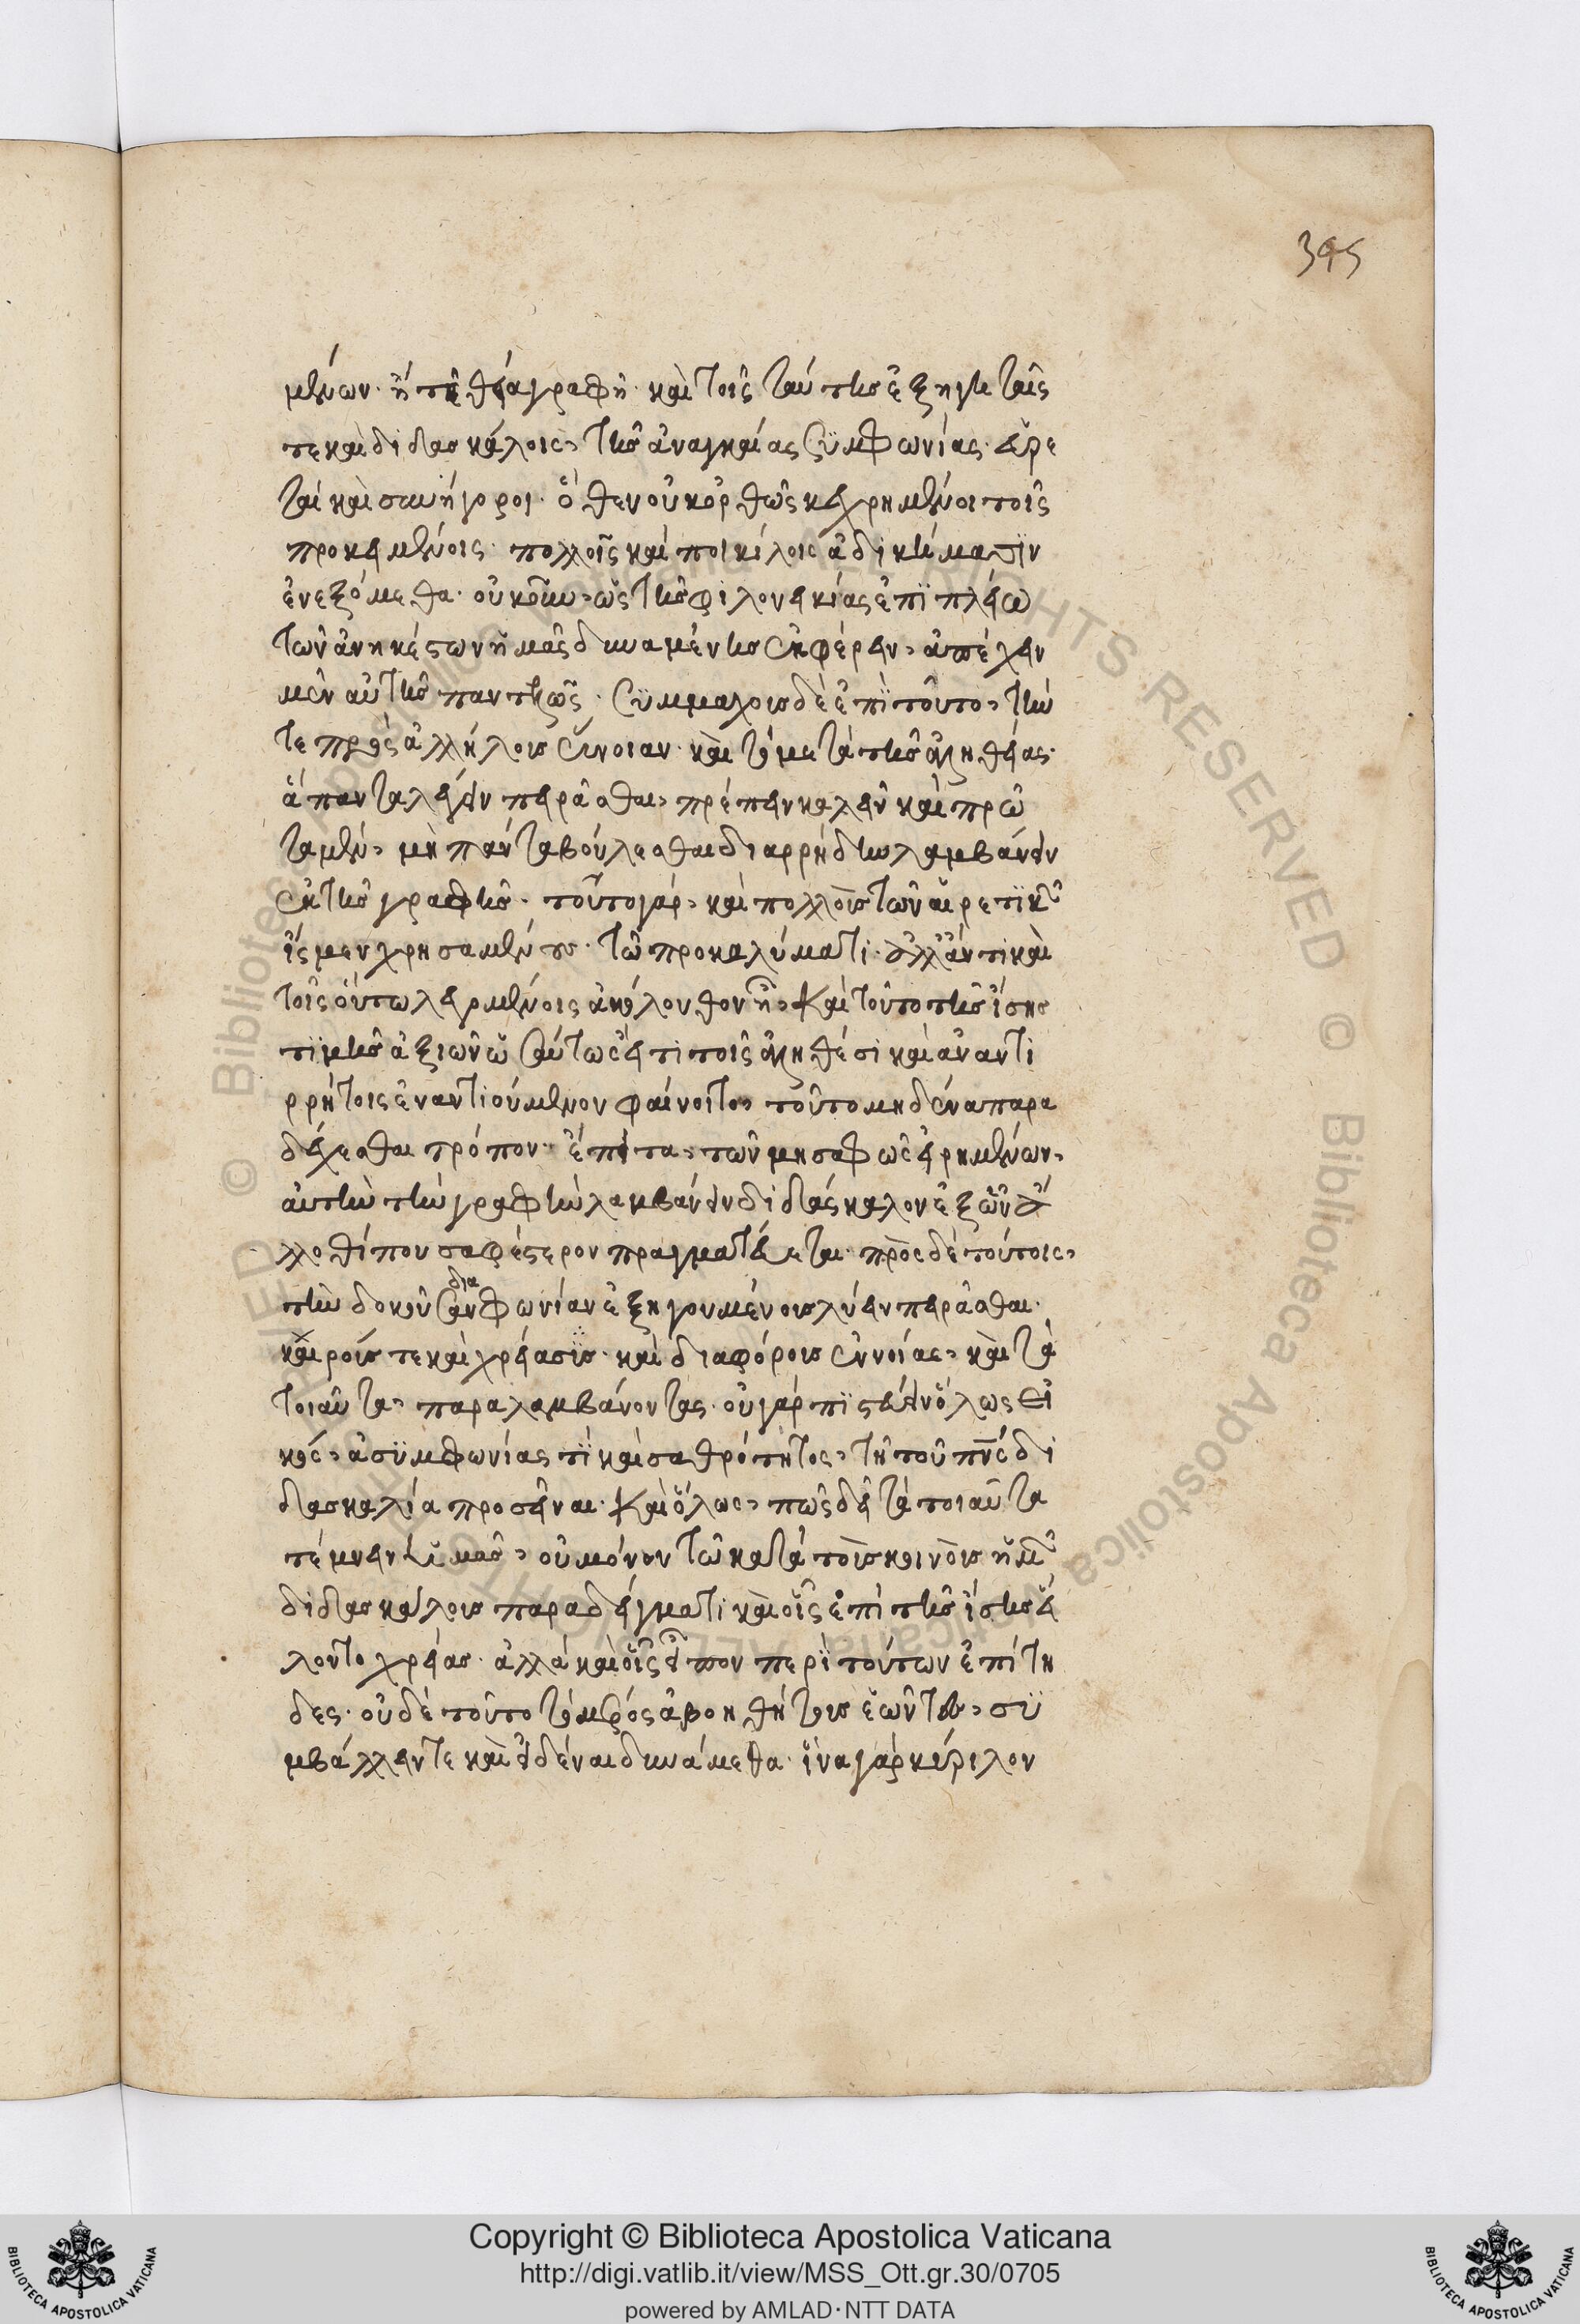 395
μένων· ἢ τῆ θεία γραφῆ· καὶ τοῖς ταύτης ἐξηγηταῖς
τε καὶ διδασκάλοις, τῆς ἀναγκαίας συμφωνίας· εὑρε
ταὶ καὶ συνήγοροι· ὅθεν οὐκ ὀρθῶς κεχρημένοι τοῖς
προκειμένοις· πολλοῖς καὶ ποικίλοις ἀδικήμασιν
ἐνεξόμεθα· οὐκοῦν, ὡς τῆς φιλονεικίας ἐπιπλέω
τῶν ἀνηκέστων ἡμᾶς δυναμένης ἐκφέρειν, ἀπέχειν
μὲν αὐτῆς παντελῶς· συμμάχους δὲ ἐπὶ τοῦτο, τὴν
τε πρὸς ἀλλήλους εὔνοιαν· καὶ τὸ μετὰ τῆς ἀληθείας·
ἅπαντα λέγειν πειρᾶσθαι, πρέπειν καλεῖν καὶ πρῶ
τα μὲν, μὴ πάντα βούλεσθαι διαρρήδην λαμβάνειν
ἐκ τῆς γραφῆς· τοῦτο γὰρ, καὶ πολλοὺς τῶν αἱρετικῶν
ἴσμεν χρησαμένους· τῶ προκαλύματι· ἀλλ' ἄν τι καὶ
τοῖς οὕτω λεγομένοις ἀκόλουθον ἦ, καὶ τοῦτο τῆς ἴσης
τιμῆς ἀξιοῦν ὡσαύτως εἴ τι τοῖς ἀληθέσι καὶ ἀναντι
ρρήτοις ἐναντιούμενον φαίνοιτο, τοῦτο μηδένα παρα
δέχεσθαι τρόπον· ἔπειτα, τῶν μὴ σαφῶς εἰρημένων,
αὐτὴν τὴν γραφὴν λαμβάνειν διδάσκαλον ἐξ ὧν ἀ
λλοθί που σαφέστερον πραγματεύεται· πρὸς δὲ τούτοις,
τὴν δοκοῦσαν διαφωνίαν ἐξηγουμένους λύειν πειρᾶσθαι·
καιρούς τε καὶ χρείας· καὶ διαφόρους ἐννοίας, καὶ τὰ
τοιαῦτα, παραλαμβάνοντας· οὐ γὰρ πιστεύειν ὅλως εἰ
κός, ἀσυμφωνίας τι καὶ σαθρότητος, τῆ τοῦ πνς δι
δασκαλία προσεῖναι· καὶ ὅλως, πῶς δεῖ τὰ τοιαῦτα
τέμνειν ἡμᾶς, οὐ μόνον τῶ κατὰ τοὺς κοινοὺς ἡμῶν
διδασκάλους παραδείγματι καὶ οἷς ἐπὶ τῆς ἴσης εἵ
λοντο χρείας· ἀλλὰ καὶ οἷς εἶπον περὶ τούτων ἐπίτη
δες· οὐδὲ τοῦτο τὸ μέρος ἀβοήθητον ἐῶντες, συ
μβάλλειν τε καὶ εἰδέναι δυνάμεθα· ἵνα γὰρ κύριλον
Copyright © Biblioteca Apostolica Vaticana
http://digi.vatlib.it/view/MSS_Ott.gr.30/0705
powered by AMLAD·NTT DATA